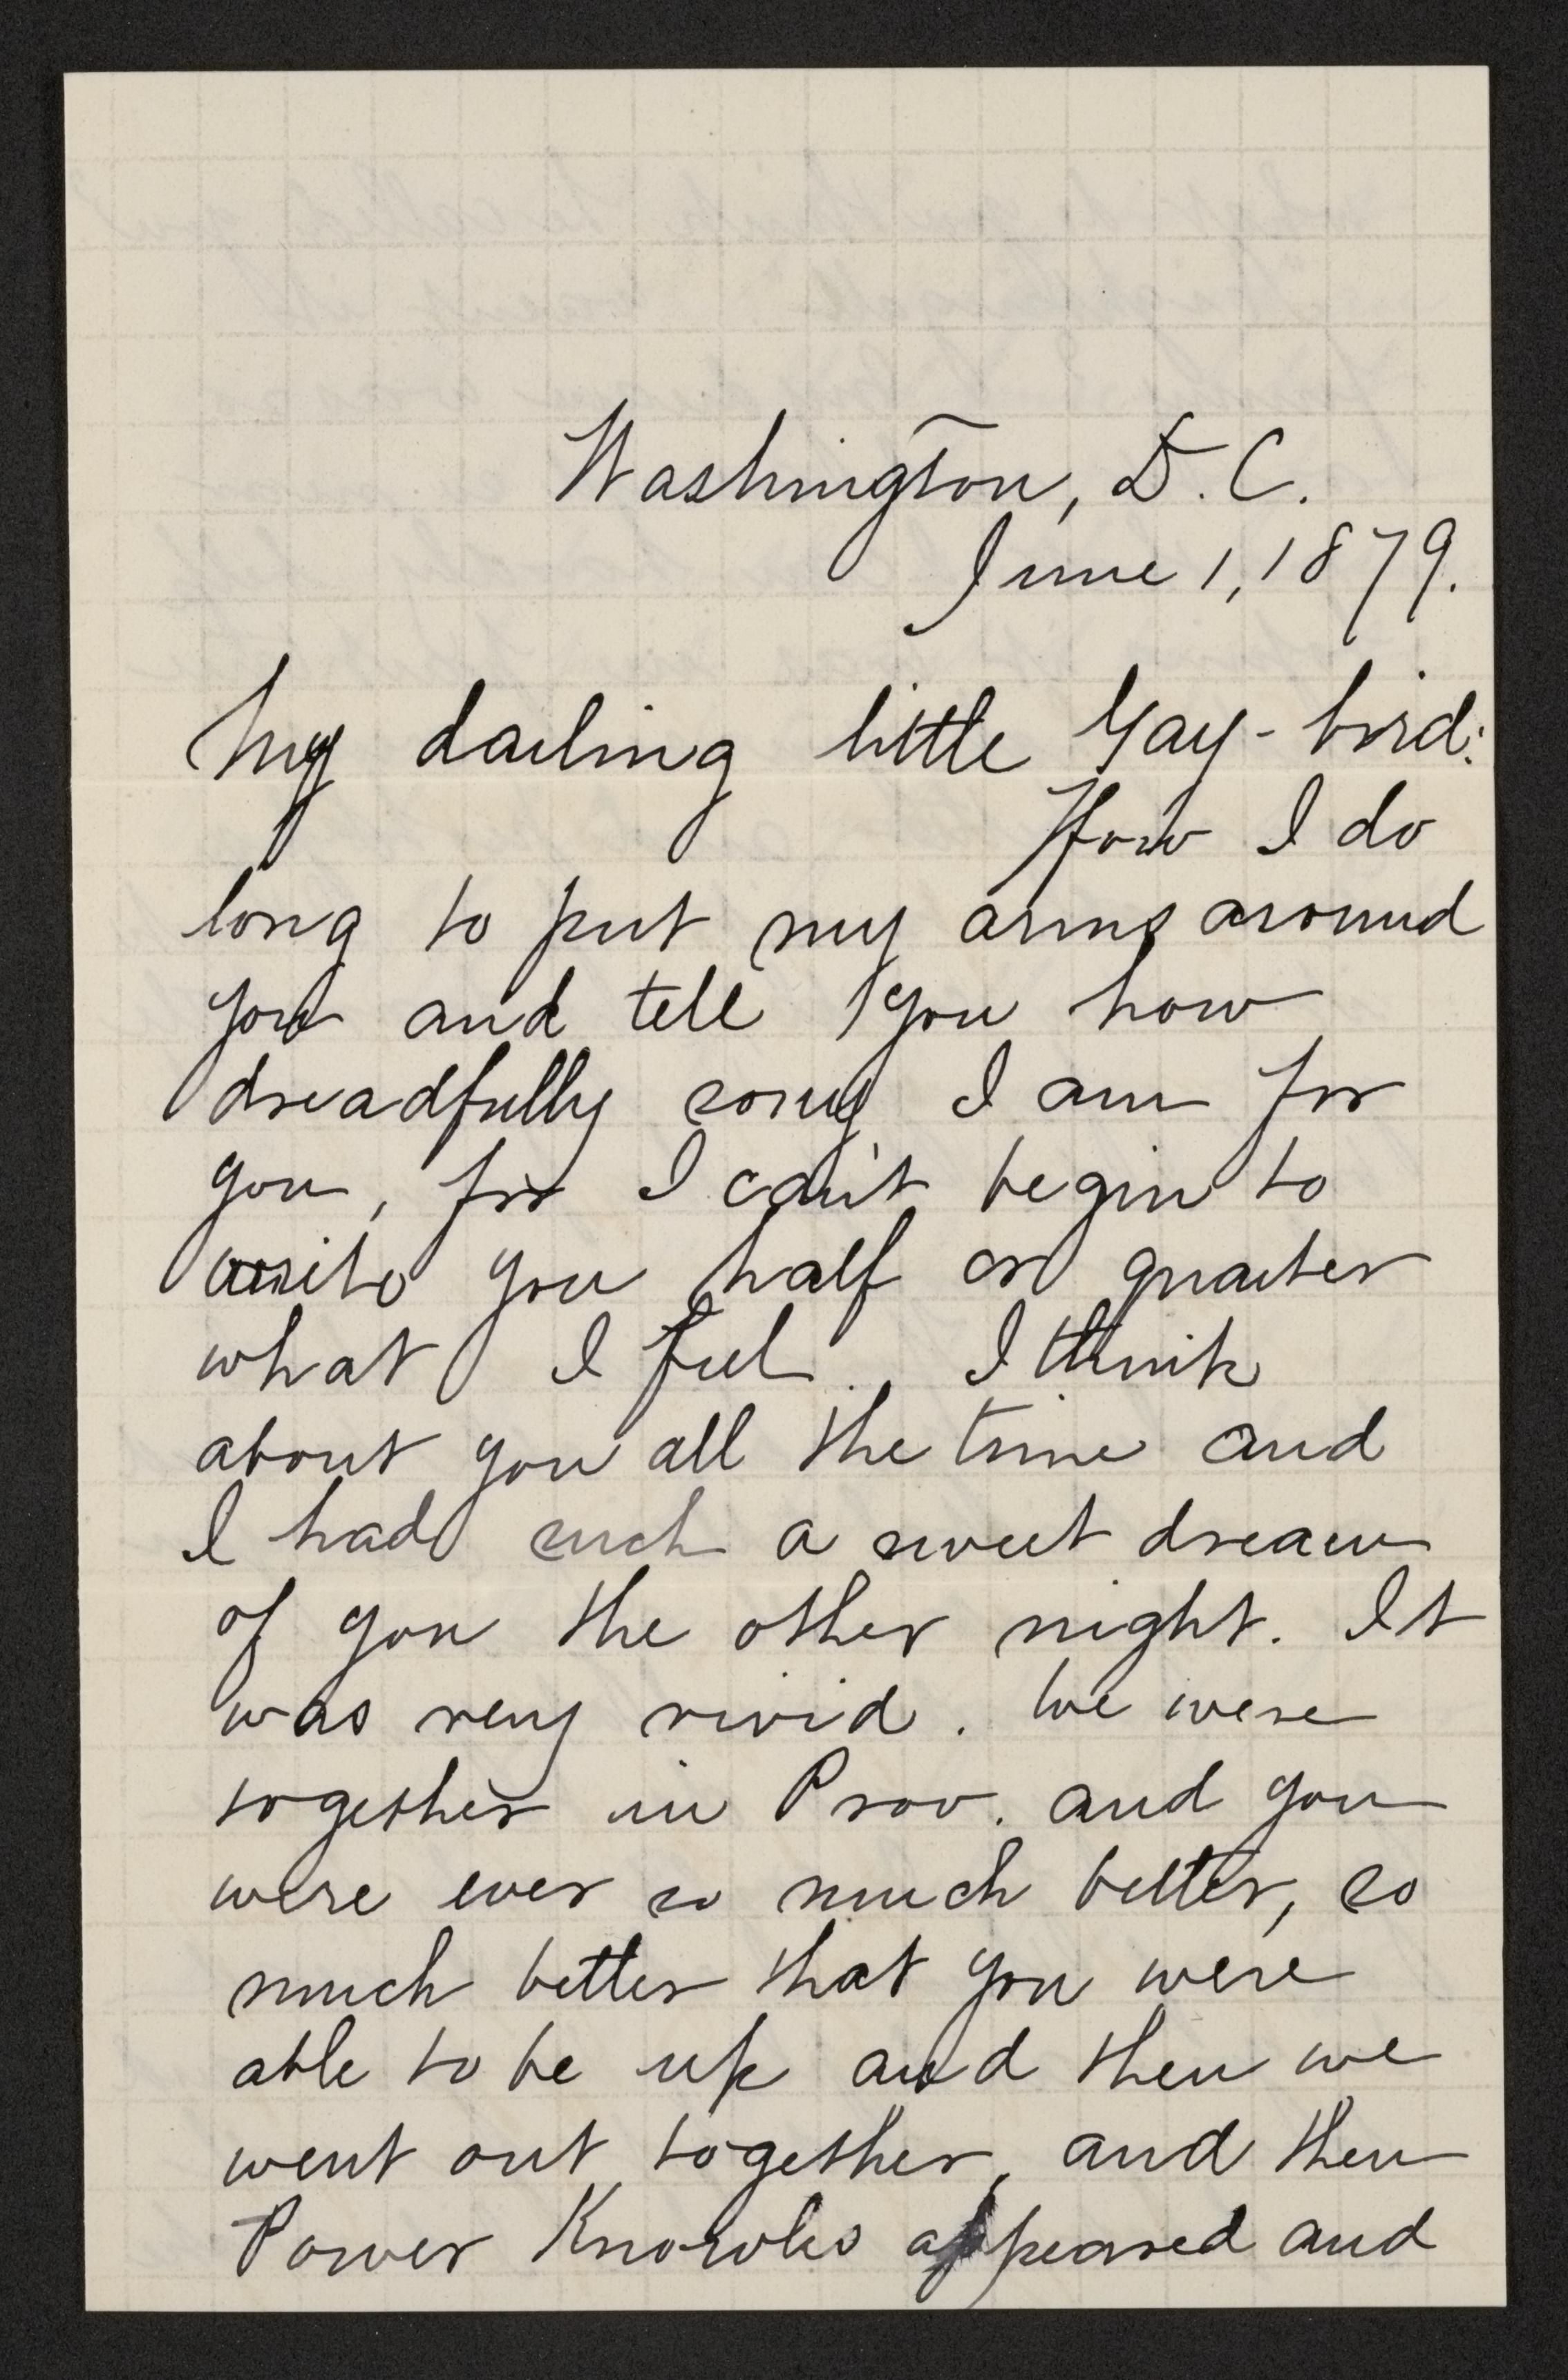 Washington, D.C.
June 1, 1879.
My darling little Gay-bird:
How I do
long to put my arms around
you and tell you how
dreadfully sorry I am for
you, for I can't begin to
write you half or quarter
what I feel. I think
about you all the time and
I had such a sweet dream
of you the other night. It
was very vivid. We were
together in Prov. and you
were ever so much better, so
much better that you were
able to be up and then we
went out together, and then
Power Knowles appeared and